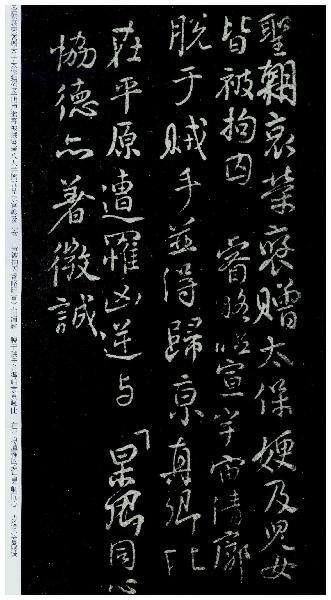 聖朝哀榮褒贈太保嫂及兒女
皆被拘囚 睿略昭宣宇宙清廓
脱于賊手並得歸京真卿比
在平原遭罹凶逆与杲卿同心
協德亦著微誠